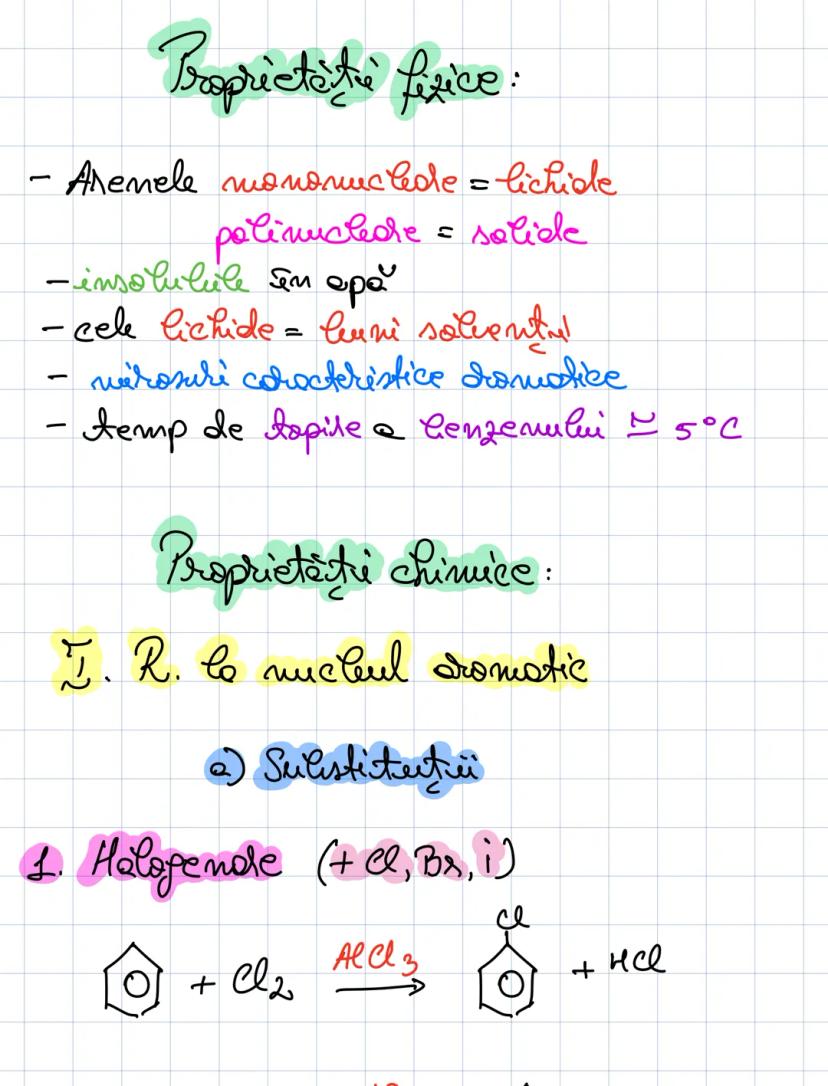 Proprietăți fizice:
- Arenele mononucleare = lichide
polinucleare = solide
- insolubile în apă
- cele lichide = buni solvenți
- mirosuri caracteristice aromatice
- temp de topire a benzenului ≃ 5°C
Proprietăți chimice:
I. R. la nucleul aromatic
a) Substituții
1. Halogenare (+ Cl, Br, i)
Cl
+ Cl2 AlCl3 → + HCl